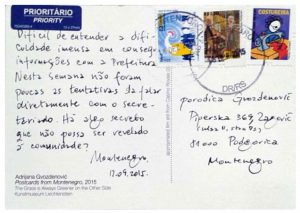 PRIORITÁRIO
PRIORITY
Difícil de entender a difi-
culdade imensa em conseguir
informações com a Prefeitura
Nesta semana não foram
poucas as tentativas de falar
diretamente com o secre-
tariado. Há algo secreto
que não possa ser revelado
à comunidade?
Montenegro,
17.09.2015.
Adrijana Gvozdenović
Postcards from Montenegro, 2015
The Grass is Always Greener on the Other Side
Kunstmuseum Liechtenstein
COSTUREIRA
DR/RS
porodica Gvozdenović
Piperska 369 Zagorič
81000 Podgorica
Montenegro